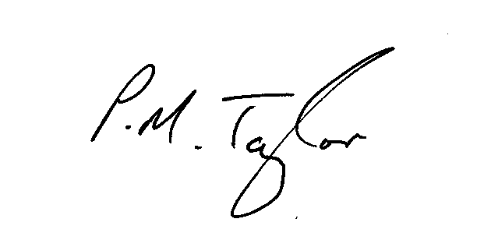 P. M. Taylor